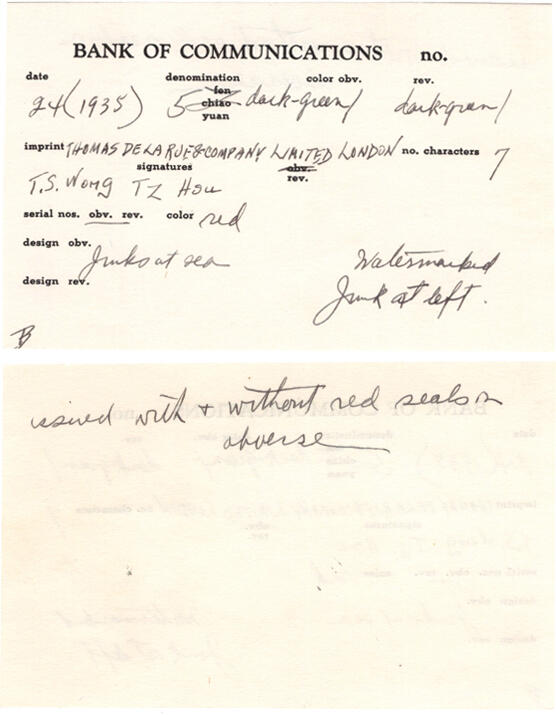 BANK OF COMMUNICATIONS no.
date denomination color obv. rev.
fen
24 (1935) 5 chiao dark-green dark-green
yuan
imprint THOMAS DE LA RUE & COMPANY LIMITED LONDON no. characters 7
signatures obv.
rev.
T.S. Wong TZ Hsu
serial nos. obv. rev. color red
design obv.
Junks at sea Watermarked
design rev.
Junk at left.
B
issued with + without red seals on
obverse